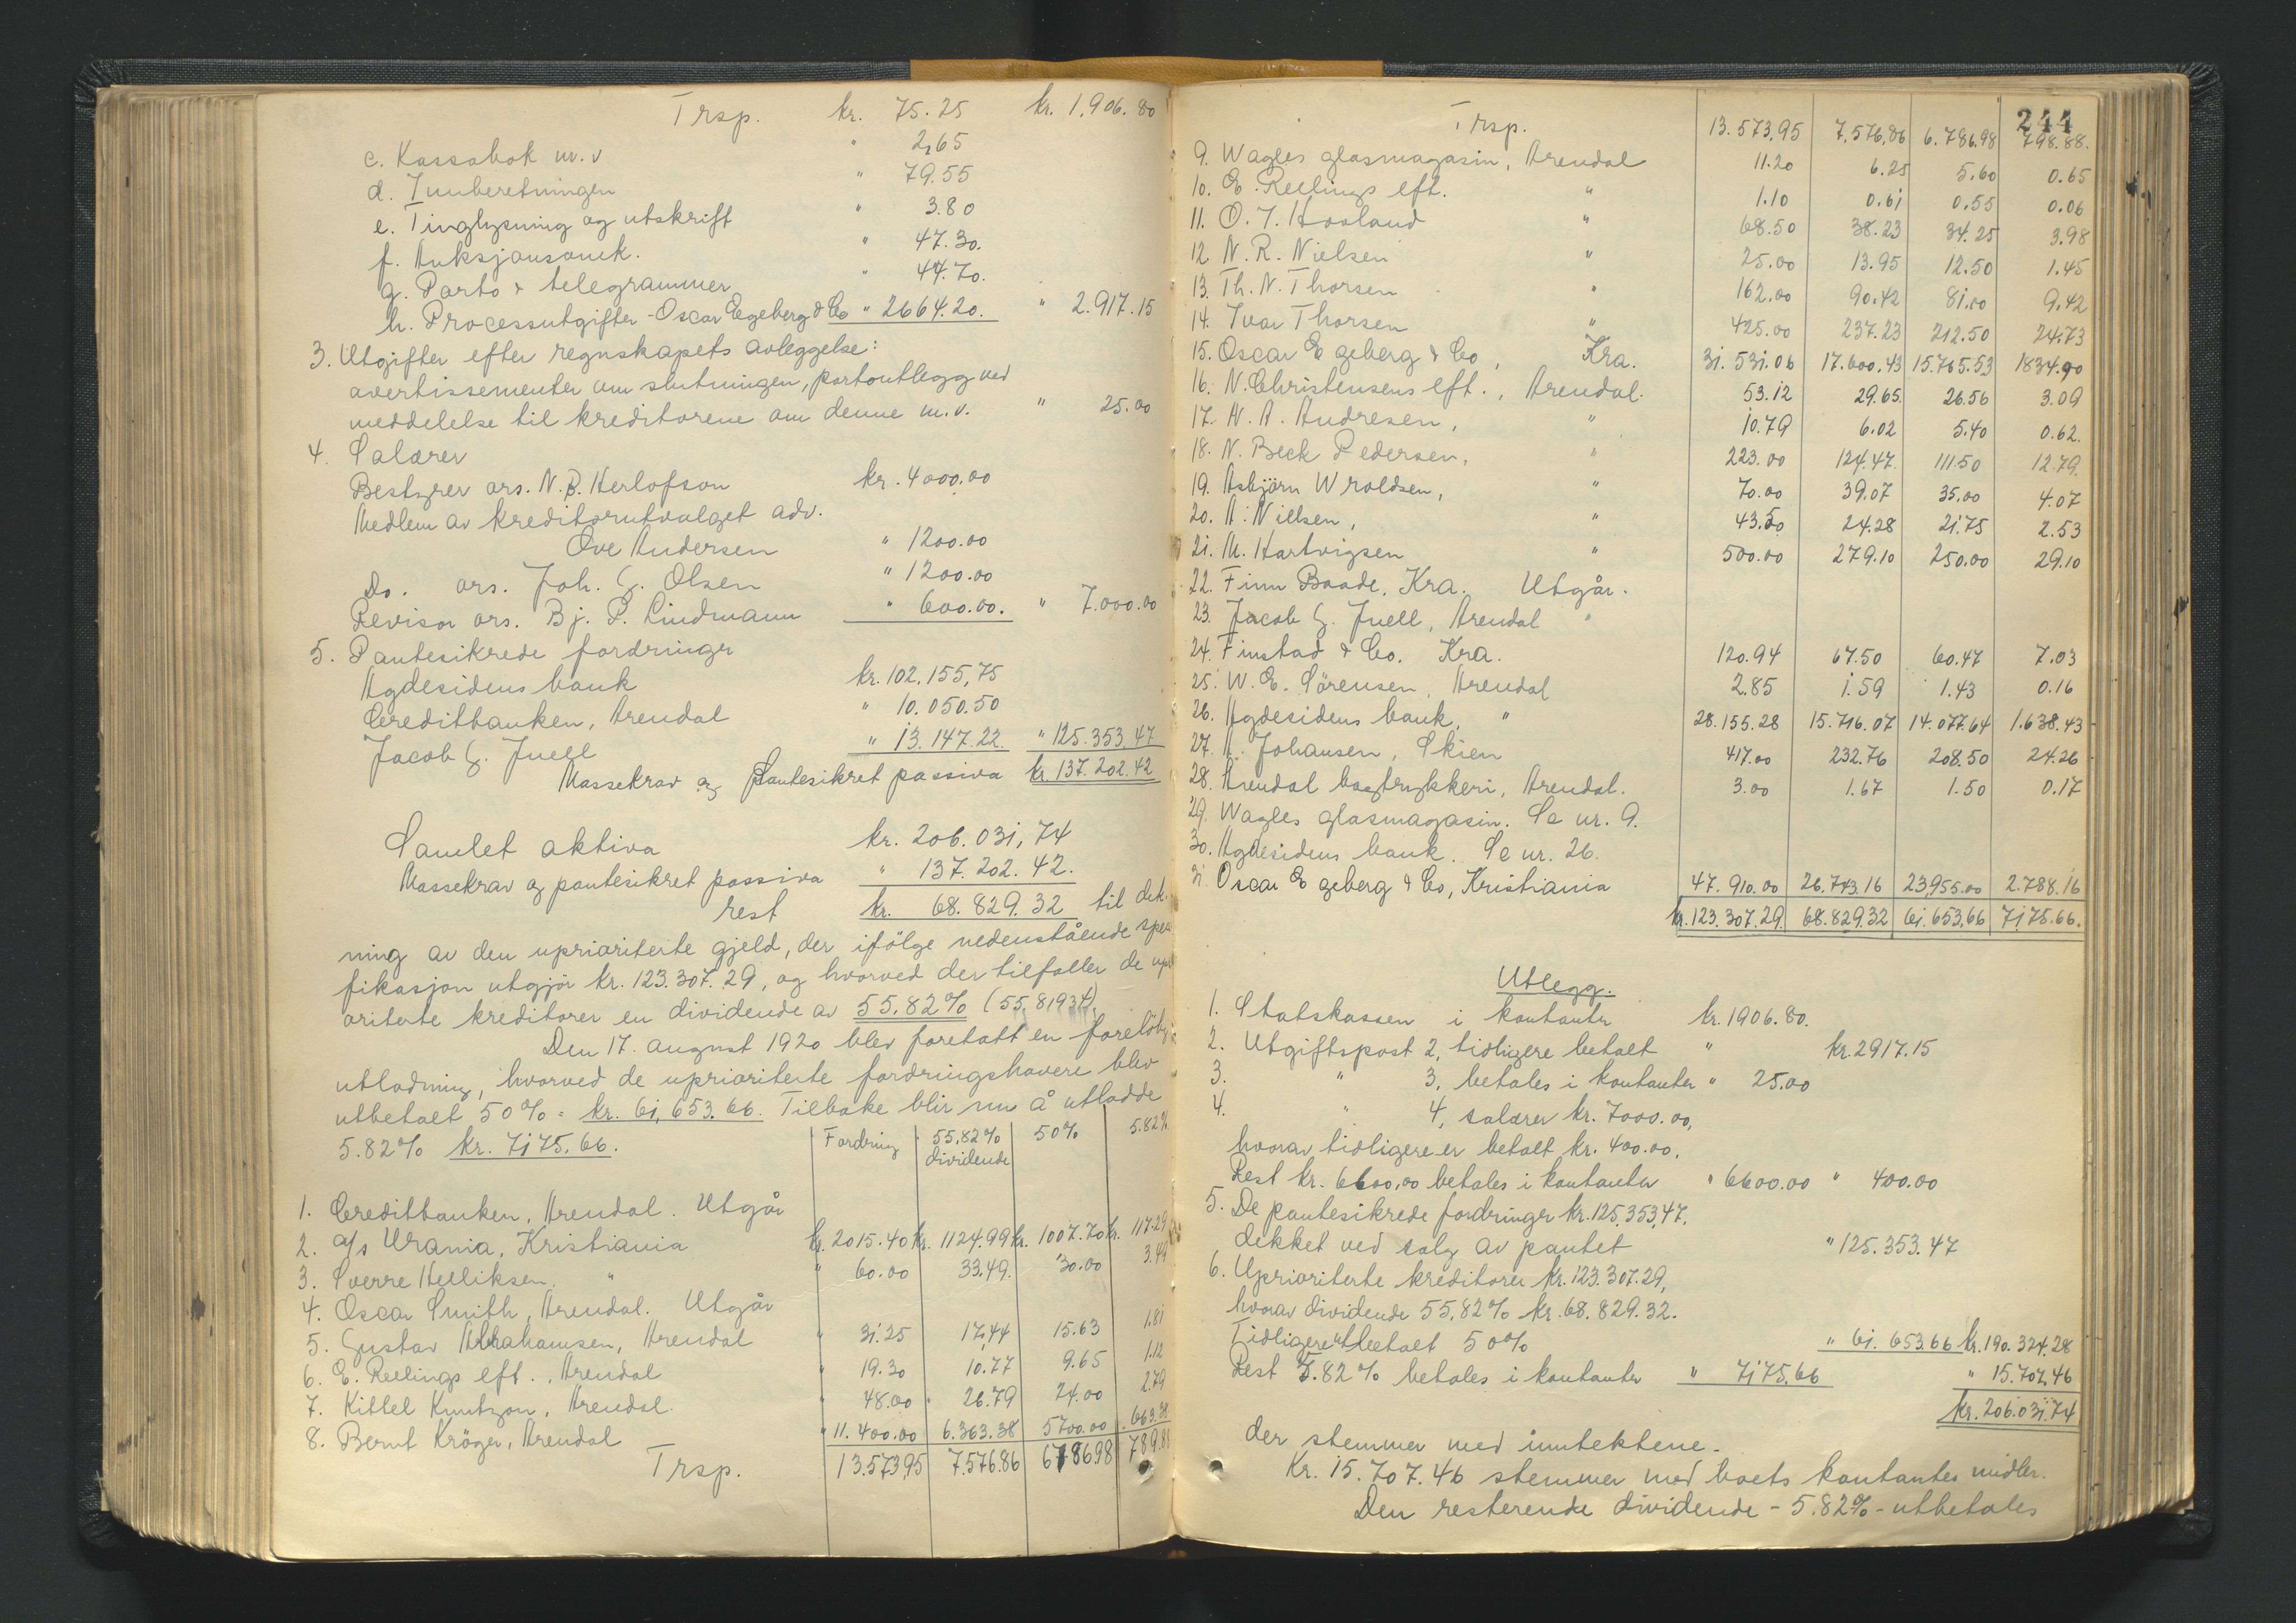 Trsp. kr. 75.25 kr. 1,906.80
c. Kassabok m.v " 2,65
d. Innberetningen " 79.55
e. Tinglysning og utskrift " 3.80
f. Auksjonsomk. " 47.30.
g. Porto & telegrammer " 44.70.
h. Processutgifter - Oscar Egeberg & Co " 2664.20. " 2.917.15
3. Utgifter efter regnskapets avleggelse:
avertissementer om slutningen, portoutlegg ved
meddelelse til kreditorene om denne m.v. " 25.00
4. Salærer
Bestyrer ors. N.B. Herlofson kr. 4000.00
Medlem av kreditorutvalget adv.
Ove Andersen " 1200.00
Do. ors. Joh. G. Olsen " 1200.00
Revisor ors. Bj. P. Lindmann " 600.00. " 7.000.00
5. Pantesikrede fordringer
Agdesidens bank kr. 102,155,75
Creditbanken, Arendal " 10.050.50
Jacob G. Juell " 13.147.22. " 125.353.47
Massekrav og pantesikret passiva kr. 137.202.42
Samlet aktiva kr. 206.031,74
Massekrav og pantesikret passiva " 137.202.42.
rest kr. 68.829.32 til dek-
ning av den uprioriterte gjeld, der ifölge nedenstående spesi
fikasjon utgjör kr. 123.307.29, og hvorved der tilfaller de upri
oriterte kreditorer en dividende av 55.82% (55,81937).
Den 17. august 1920 blev foretatt en forelöbig
utlodning, hvorved de uprioriterte fordringshavere blev
utbetalt 50% = kr. 61,653.66. Tilbake blir nu å utlodde
5.82% kr. 7175.66.
Fordring 55,82% dividende 50% 5.82%
1. Creditbanken, Arendal. Utgår
2. A/s Urania, Kristiania kr. 2015.40 kr. 1124.99 kr. 1007.70 kr. 117.29
3. Sverre Helliksen, " " 60.00 33.49. 30.00 3.49
4. Oscar Smith, Arendal. Utgår
5. Gustav Abrahamsen, Arendal " 31.25 17,44 15.63 1.81
6. E. Reelings eft., Arendal " 19.30 10.77 9.65 1.12
7. Kittel Knutzon, Arendal " 48.00 26.79 24.00 2.79
8. Bernt Kröger, Arendal " 11.400.00 6.363.38 5700.00 663.38
Trsp. 13.573,95 7.576.86 6786.98 789.88
244
Trsp. 13.573,95 7,576,86 6.786,98 798.88.
9. Wagles glasmagasin, Arendal 11.20 6.25 5.60 0.65
10. E. Reelings eft. " 1.10 0.61 0.55 0.06
11. O. T. Hosland " 68.50 38.23 34.25 3.98
12 N. R. Nielsen " 25.00 13.95 12.50 1.45
13. Th. N. Thorsen " 162.00 90.42 81.00 9.42
14. Ivar Thorsen " 425.00 237.23 212.50 24.73
15. Oscar Egeberg & Co, Kra. 31.531.06 17.600.43 15.765.53 1834.90
16. N. Christensens eft., Arendal. 53.12 29.65. 26.56 3.09
17. N. A. Andresen, " 10.79 6.02 5.40 0.62.
18. N. Beck Pedersen, " 223.00 124.47. 111.50 12.79.
19. Asbjörn Wroldsen, " 70.00 39.07 35.00 4.07
20. A. Nilsen, " 43.50 24.28 21.75 2.53
21. M. Hartvigsen " 500.00 279.10 250.00 29.10
22. Finn Baade, Kra. Utgår.
23. Jacob G. Juell, Arendal "
24. Finstad & Co. Kra. 120.94 67.50 60.47 7.03
25. W. E. Sörensen, Arendal 2.85 1.59 1.43 0.16
26. Agdesidens bank, " 28.155.28 15.716.07 14.077.64 1.638.43
27. A. Johansen, Skien 417.00 232.76 208.50 24.26
28. Arendal bogtrykkeri, Arendal. 3.00 1.67 1.50 0.17
29. Wagles glasmagasin. Se nr. 9.
30. Agdesidens bank. Se nr. 26.
31. Oscar Egeberg & Co, Kristiania 47.910.00 26.743.16 23,955.00 2.788.16
kr. 123.307.29 68.829.32 61.653,66 7175.66.
Utlegg.
1. Statskassen i kontanter kr. 1906.80.
2. Utgiftspost 2, tidligere betalt " kr. 2917.15
3. " 3, betales i kontanter " 25.00
4. " 4, salærer kr. 7000.00,
hvorav tidligere er betalt kr. 400.00,
Rest kr. 6600,00 betales i kontanter " 6600.00 " 400.00
5. De pantesikrede fordringer kr. 125.353,47,
dekket ved salg av pantet " 125.353.47
6. Uprioriterte kreditorer kr. 123.307.29,
hvorav dividende 55,82% kr. 68.829.32.
Tidligere utbetalt 50% " 61.653.66 kr. 190.324.28
Rest 5.82% betales i kontanter " 7175,66 " 15.707,46
kr. 206.031.74
der stemmer med inntektene.
Kr. 15.707.46 stemmer med boets kontanter midler.
Den resterende dividende - 5.82% - utbetales